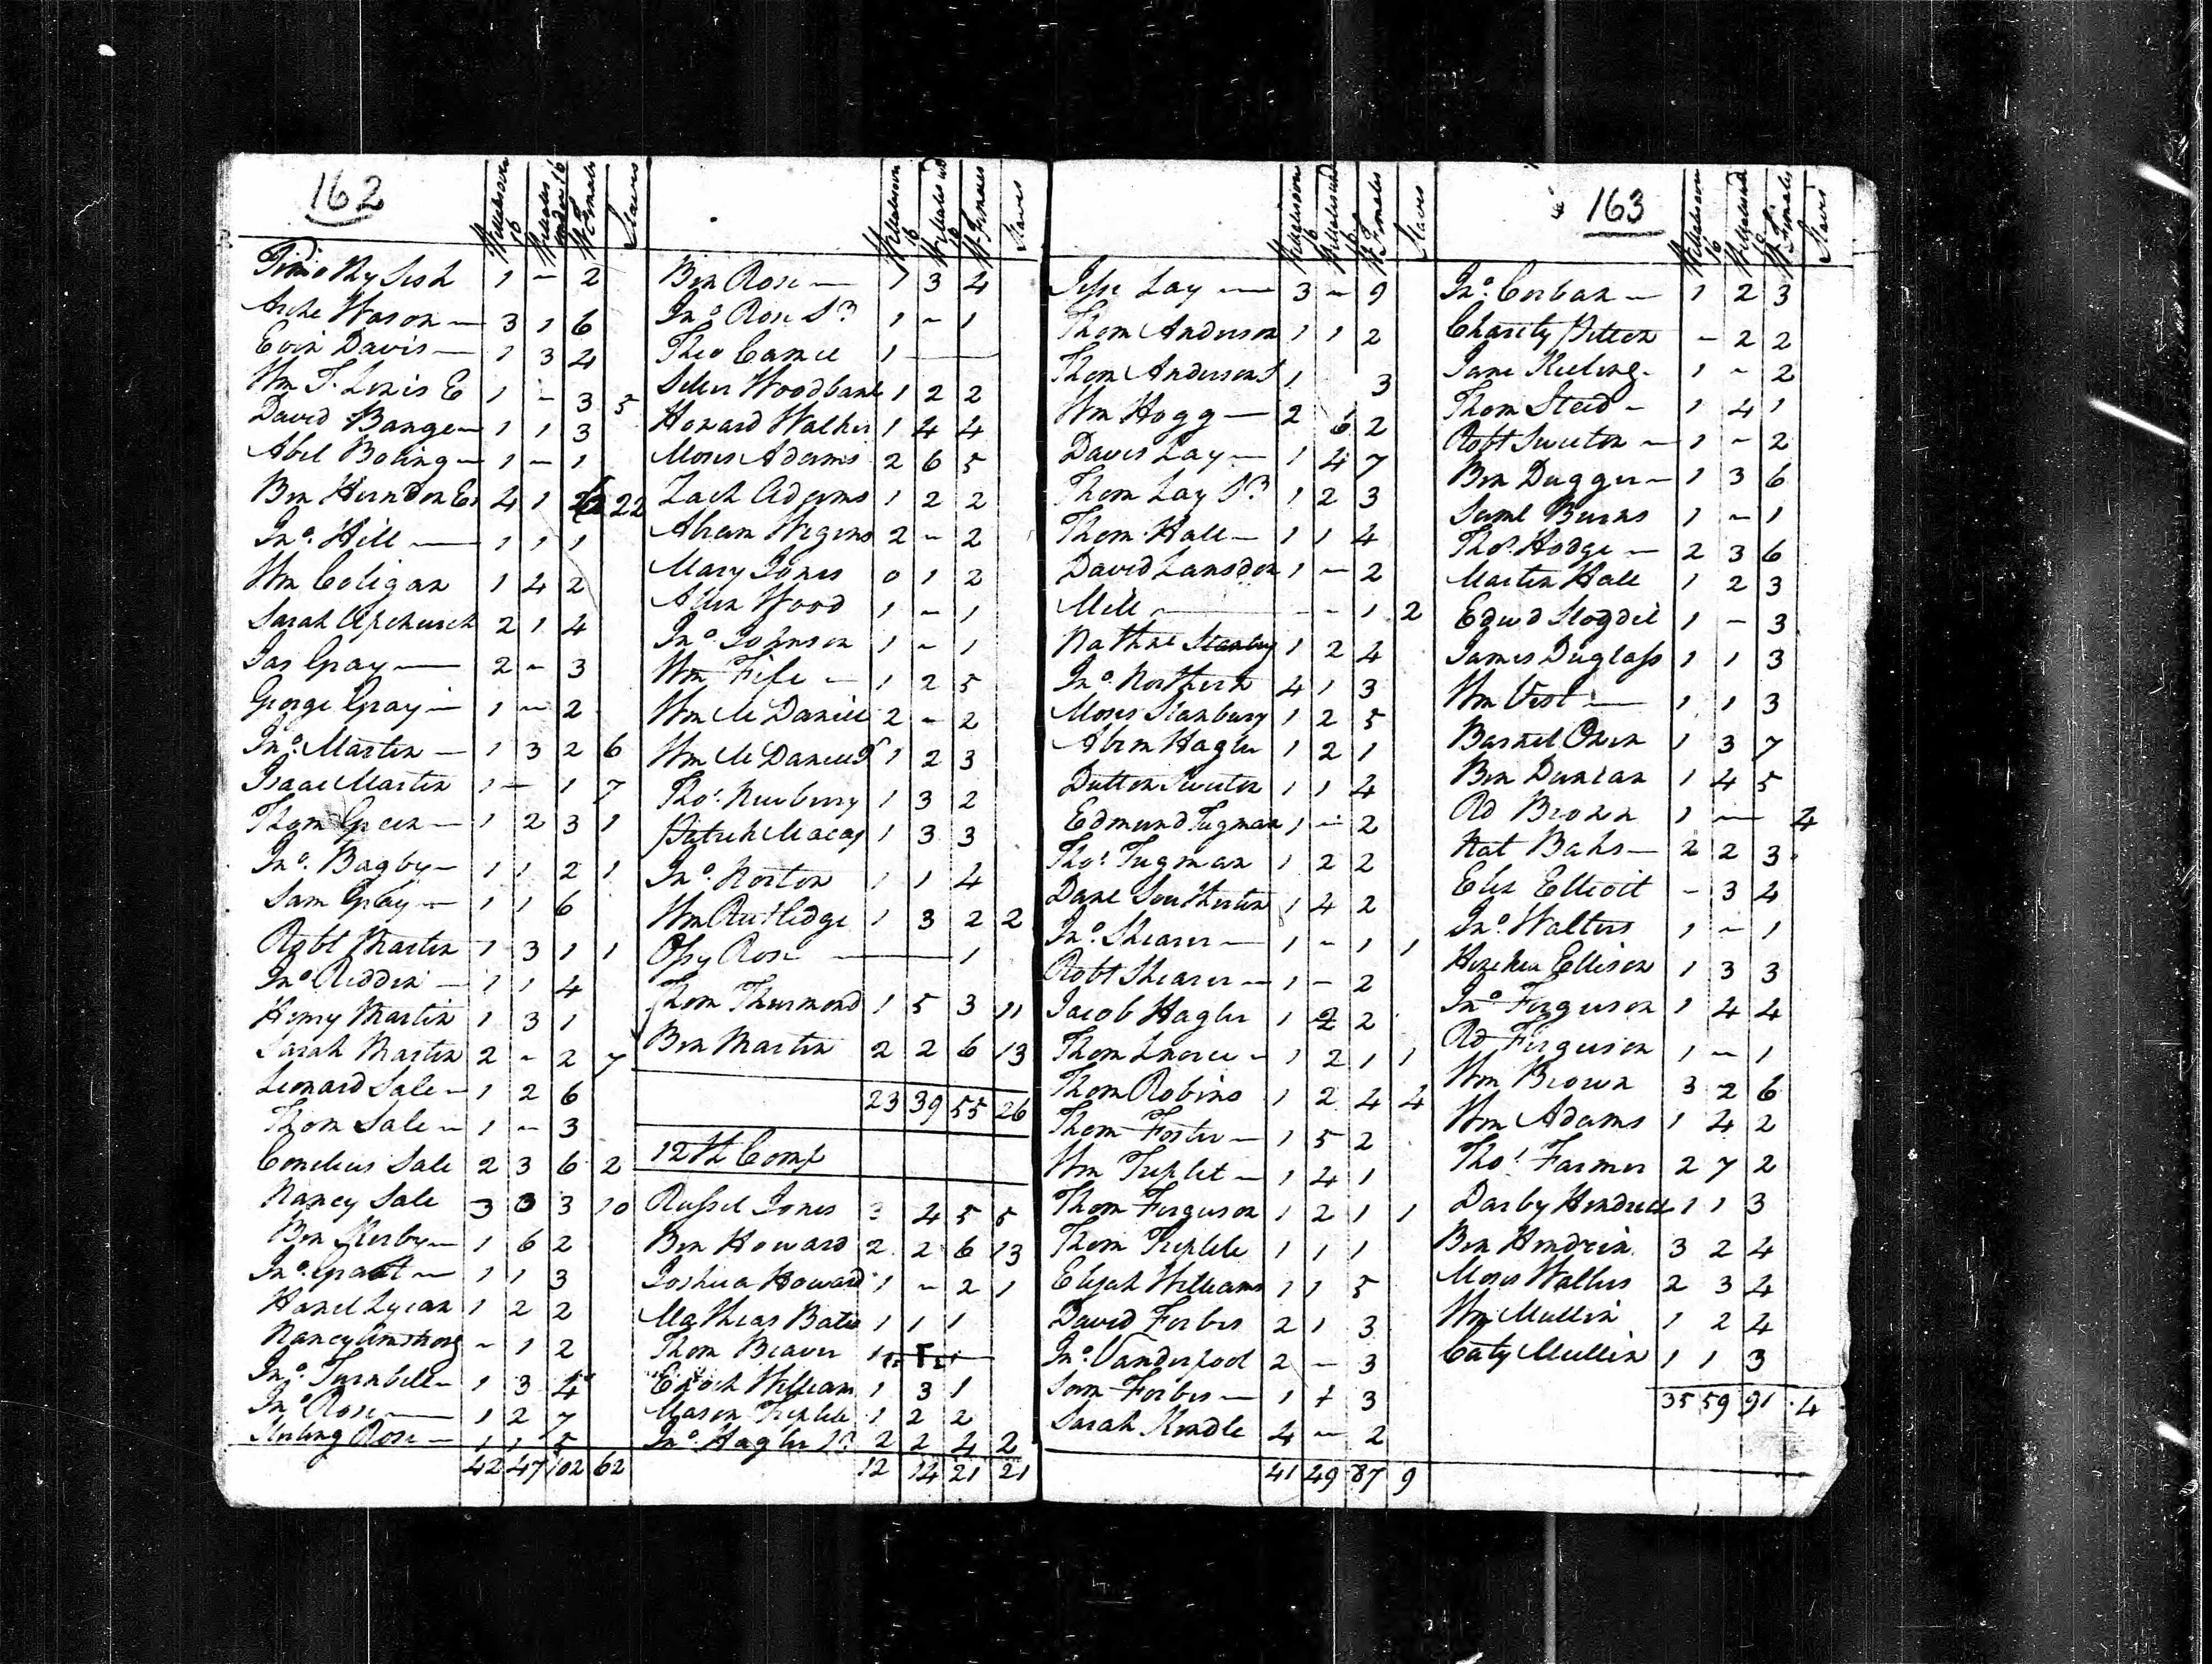 162
W Males over 16 | W Males under 16 | W Females | Slaves
Timothy Sish 1 - 2
Arche Wason — 3 1 6
Evin Davis — 1 3 4
Wm T. Lewis E 1 - 3 5
David Bange — 1 1 3
Abel Boling — 1 - 1
Ben Herndon Es 4 1 22
Jno. Hill — 1 1 1
Wm Coligan 1 4 2
Sarah Upchurch 2 1 4
Jas Gray — 2 - 3
George Gray — 1 - 2
Jno. Martin — 1 3 2 6
Isaac Martin 1 - 1 7
Thom Green — 1 2 3 1
Jno. Bagby — 1 1 2 1
Sam Gray — 1 1 6
Robt Martin 1 3 1 1
Jno Reddin — 1 1 4
Henry Martin 1 3 1
Sarah Martin 2 - 2 7
Leonard Sale — 1 2 6
Thom Sale — 1 - 3
Cornelius Sale 2 3 6 2
Nancy Sale 3 3 3 10
Ben 1 6 2
Jno. Grant — 1 1 3
1 2 2
Nancy Armstrong - 1 2
Jno. Turnbill — 1 3 4
Jno Rose — 1 2 7
Sterling Rose — 1 1 5
42 47 102 62
W Males over 16 | W Males und 16 | W Females | Slaves
Ben Rose — 1 3 4
Jno Rose Sr 1 - 1
Theo Camel 1 —
Woodbank 1 2 2
Howard Walker 1 4 4
Moses Adams 2 6 5
Zach Adams 1 2 2
Abram Wigins 2 - 2
Mary Jones 0 1 2
Allen Wood 1 - 1
Jno. Johnson 1 - 1
Wm Fife — 1 2 5
Wm McDaniel 2 - 2
Wm McDaniel 1 2 3
Thos. Newberry 1 3 2
Patrick 1 3 3
Jno. Norton 1 1 4
Wm Rutledge 1 3 2 2
Ossy Rose — 1
Thom Thurmond 1 5 3 11
Ben Martin 2 2 6 13
23 39 55 26
12th Comp
Russel Jones 3 4 5 5
Ben Howard 2 2 6 13
Joshua Howard 1 - 2 1
Mathias Bates 1 1 1
Thom Beaver 1
Enoch William 1 3 1
Mason Triplete 1 2 2
Jno. Hagler Sr 2 2 4 2
12 14 21 21
W Males over 16 | W Males und 16 | W Females | Slaves
Jesse Lay — 3 - 9
Thom Anderson 1 1 2
Thom Anderson S 1 3
Wm Hogg — 2 6 2
Daves Lay — 1 4 7
Thom Lay Sr 1 2 3
Thom. Hall — 1 1 4
David Lansdon 1 - 2
— - 1 2
Nathnl Stanbury 1 2 4
Jno. Northern 4 1 3
Moses Stanbury 1 2 5
Abrm Hagler 1 2 1
Dutton Sweeton 1 1 4
Edmund Tugman 1 - 2
Thos. Tugman 1 2 2
Danl Southerlin 1 4 2
Jno. Shearer — 1 - 1 1
Robt Shearer — 1 - 2
Jacob Hagler 1 2 2
Thom — 1 2 1 1
Thom Robins 1 2 4 4
Thom Foster — 1 5 2
Wm Triplet — 1 4 1
Thom Ferguson 1 2 1 1
Thom Triplete 1 1 1
Elijah Williams 1 1 5
David Forbes 2 1 3
Jno. Vanderpool 2 - 3
Forbes — 1 1 3
Sarah Kendle 4 - 2
41 49 87 9
163
W Males over 16 | W Males und 16 | W Females | Slaves
Jno. Corban — 1 2 3
Charity Pitten - 2 2
Jane Keeling - 1 - 2
Thom Steed - 1 4 1
Robt Sweeton — 1 - 2
Ben Dugger — 1 3 6
Saml Burns 1 - 1
Thos. Hodge — 2 3 6
Martin Hall 1 2 3
Edwd Stogdil 1 - 3
James Duglass 1 1 3
Wm Vest — 1 1 3
Barnet Owen 1 3 7
Ben Duncan 1 4 5
Rd Brown 1 — 4
Nat Baks — 2 2 3
Eliz Elliott - 3 4
Jno. Walters 1 - 1
Hezekia Ellison 1 3 3
Jno Ferguson 1 4 4
Rd Ferguson 1 - 1
Wm Brown 3 2 6
Wm Adams 1 4 2
Thos. Farmer 2 7 2
Darby Hendrick 1 1 3
Ben Hendrin 3 2 4
Moses Walters 2 3 4
Wm Mullin 1 2 4
Caty Mullin 1 1 3
35 59 91 4